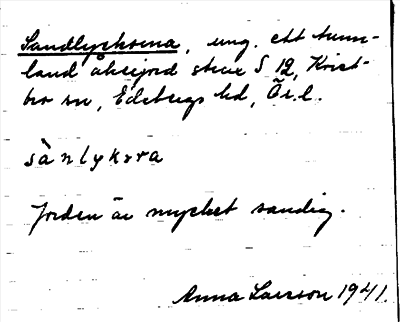 Sandlyckorna, ung. ett tunn-
land åkerjord S 12, Krist-
bro sn, Edsbergs hd, Ör.l.
sànlykɤra
Jorden är mycket sandig.
Anna Larsson 1941.